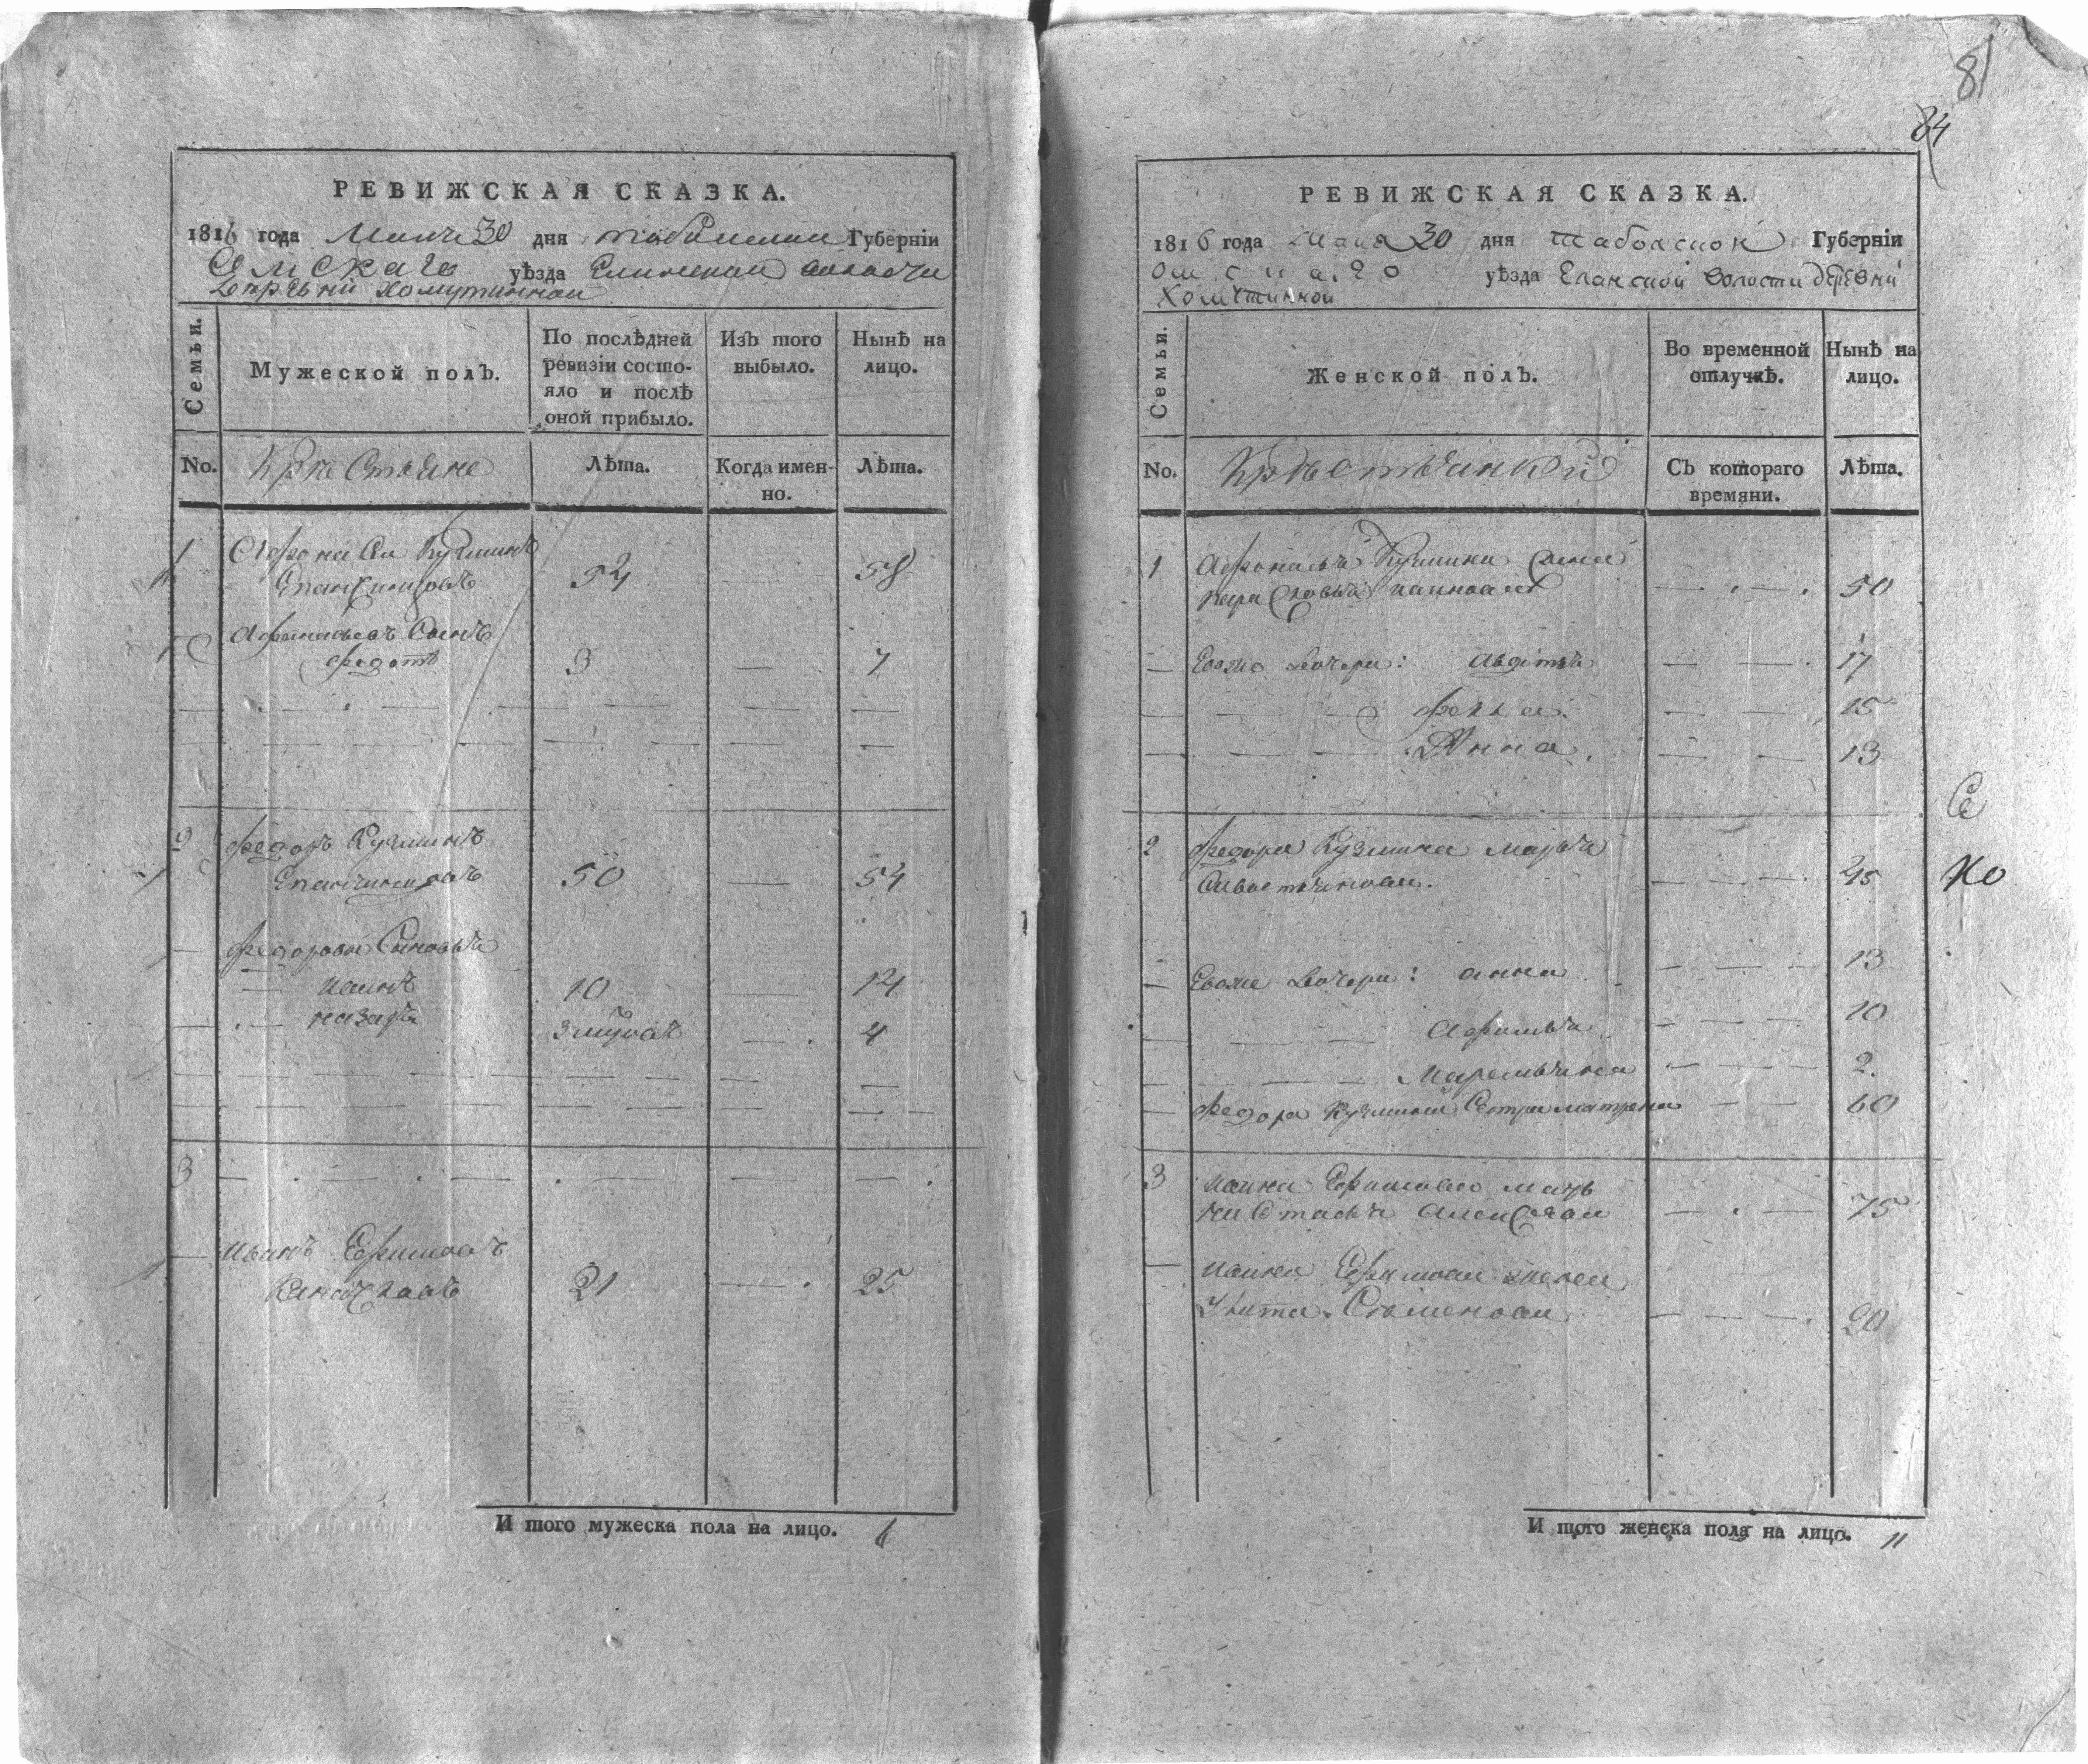 РЕВИЖСКАЯ СКАЗКА.
1816 года Маия 30 дня Тобольской Губернїи
Омскаго уѣзда Еланской волости
деревни Хомутинной
Семьи.
Мужеской полъ.
По послѣдней ревизїи состо-
яло и послѣ оной прибыло.
Изъ того выбыло.
Нынѣ на лицо.
No.
Крестьяне
Лѣта.
Когда имен-
но.
Лѣта.
1 Афонасей Кузминъ
54 58
Афонасьевъ Сынъ
Федотъ 3 7
2 Федоръ Кузминъ
50 54
Федоровы Сыновья
Иванъ 10 14
Назаръ 4
3
Иванъ Ефимовъ
21 25
И того мужеска пола на лицо. 6
81
84
РЕВИЖСКАЯ СКАЗКА.
1816 года Маия 30 дня Тобольской Губернїи
Омскаго уѣзда Еланской волости деревни
Хомутинной
Семьи.
Женской полъ.
Во временной отлучкѣ.
Нынѣ на лицо.
No.
Крестьянки
Съ котораго времяни.
Лѣта.
1 Афонасья Кузмина жена
50
Евоже дочери: Авдотья 17
Фекла 15
Анна 13
Се
2 Федора Кузмина Марья
45
Хо
Евоже дочери: Анна 13
Афимья 10
Маремьяна 2
Федора Кузмина Сестра Матрена 60
3 Ивана Ефимова мать
Настасья 75
Ивана Ефимова жена
Улита Семенова 20
И того женска пола на лицо. 11